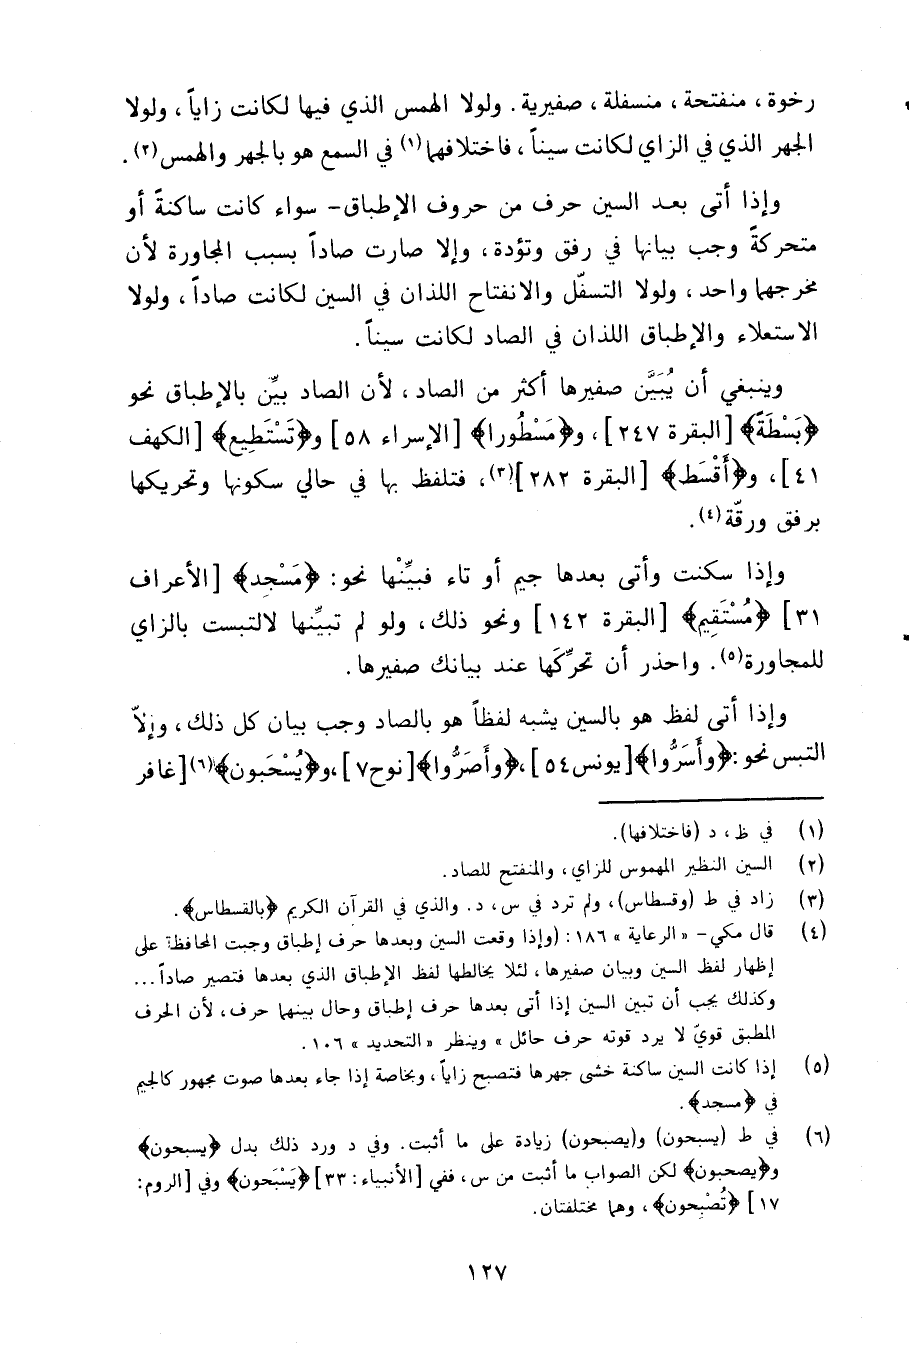 رخوة ، منفتحة ، منسفلة ، صفيرية . ولولا الهمس الذي فيها لكانت زاياً ، ولولا
الجهر الذي في الزاي لكانت سيناً ، فاختلافهما(١) في السمع هو بالجهر والهمس(٢) .
وإذا أتى بعد السين حرف من حروف الإطباق – سواء كانت ساكنةً أو
متحركةً وجب بيانها في رفق وتؤدة ، وإلا صارت صاداً بسبب المجاورة لأن
مخرجهما واحد ، ولولا التسفّل والانفتاح اللذان في السين لكانت صاداً ، ولولا
الاستعلاء والإطباق اللذان في الصاد لكانت سيناً .
وينبغي أن يُبَيَّن صفيرها أكثر من الصاد ، لأن الصاد بيِّن بالإطباق نحو
﴿بَسْطَةً﴾ [البقرة ٢٤٧] ، و﴿مَسْطُورا﴾ [الإسراء ٥٨] و﴿تَسْتَطِيع﴾ [الكهف
٤١] ، و﴿أَقْسَط﴾ [البقرة ٢٨٢](٣) ، فتلفظ بها في حالي سكونها وتحريكها
برفق ورقّة(٤) .
وإذا سكنت وأتى بعدها جيم أو تاء فبيِّنْها نحو : ﴿مَسْجِد﴾ [الأعراف
٣١] ﴿مُسْتَقِيم﴾ [البقرة ١٤٢] ونحو ذلك ، ولو لم تبيِّنها لالتبست بالزاي
للمجاورة(٥) . واحذر أن تحرِّكَها عند بيانك صفيرها .
وإذا أتى لفظ هو بالسين يشبه لفظاً هو بالصاد وجب بيان كل ذلك ، وإلاّ
التبس نحو : ﴿وأَسَرُّوا﴾ [يونس٥٤] ، ﴿وأَصَرُّوا﴾ [نوح٧] ، و﴿يُسْحَبون﴾(٦) [غافر
(١) في ظ ، د (فاختلافها) .
(٢) السين النظير المهموس للزاي ، والمنفتح للصاد .
(٣) زاد في ط (وقسطاس) ، ولم ترد في س ، د . والذي في القرآن الكريم ﴿بالقسطاس﴾ .
(٤) قال مكي – « الرعاية » ١٨٦ : (وإذا وقعت السين وبعدها حرف إطباق وجبت المحافظة على
إظهار لفظ السين وبيان صفيرها ، لئلا يخالطها لفظ الإطباق الذي بعدها فتصير صاداً ...
وكذلك يجب أن تبين السين إذا أتى بعدها حرف إطباق وحال بينهما حرف ، لأن الحرف
المطبق قويّ لا يرد قوته حرف حائل » وينظر « التحديد » ١٠٦ .
(٥) إذا كانت السين ساكنة خشى جهرها فتصبح زاياً ، وبخاصة إذا جاء بعدها صوت مجهور كالجيم
في ﴿مسجد﴾ .
(٦) في ط (يسبحون) و(يصبحون) زيادة على ما أثبت . وفي د ورد ذلك بدل ﴿يسبحون﴾
و﴿يصحبون﴾ لكن الصواب ما أثبت من س ، ففي [الأنبياء : ٣٣] ﴿يَسْبَحون﴾ وفي [الروم :
١٧] ﴿تُصْبِحون﴾ ، وهما مختلفتان .
١٢٧